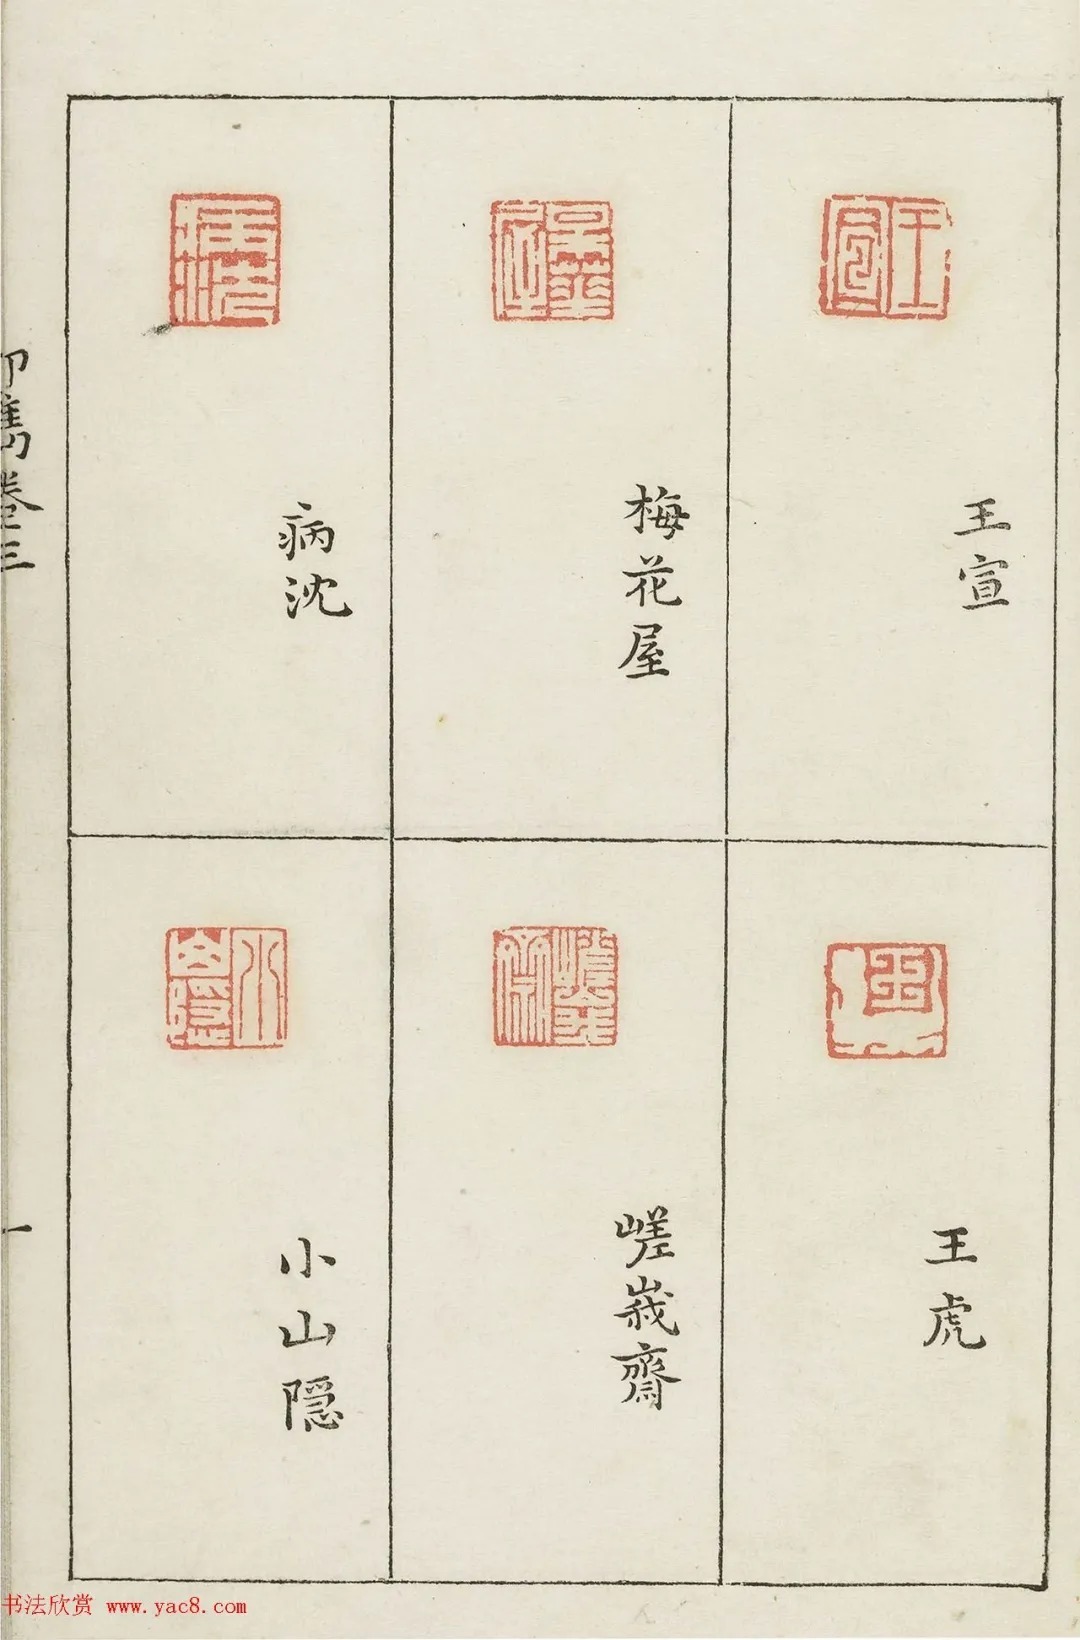 王宣
梅花屋
病沈
王虎
嵯峩齋
小山隱
印雋卷三
一
书法欣赏 www.yac8.com